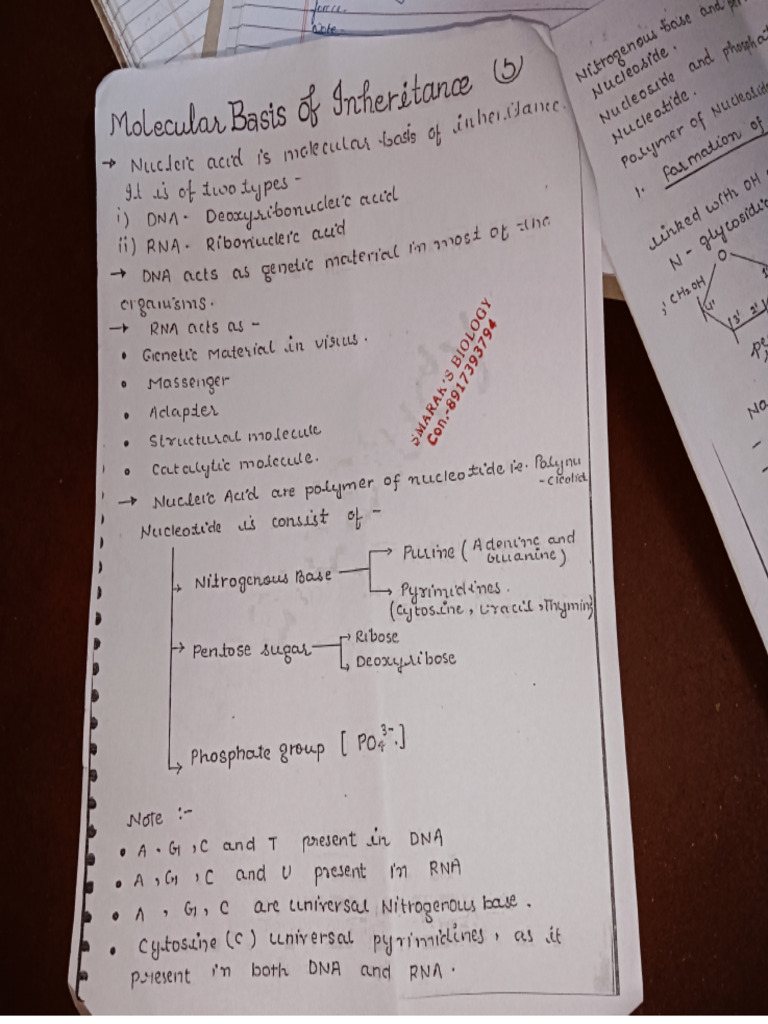 Molecular Basis of Inheritance (5)
→ Nucleic acid is molecular basis of inheritance.
It is of two types -
i) DNA - Deoxyribonucleic acid
ii) RNA - Ribonucleic acid
→ DNA acts as genetic material in most of the
organisms.
→ RNA acts as -
• Genetic Material in virus.
• Massenger
• Adapter
• Structural molecule
• Catalytic molecule.
SMARAK'S BIOLOGY
Con.-8917393794
→ Nucleic Acid are polymer of nucleotide ie. Polynu
-cleotid
Nucleotide is consist of -
→ Nitrogenous Base → Purine (Adenine and
Guanine)
→ Pyrimidines.
(Cytosine, Uracil, Thymin)
→ Pentose sugar → Ribose
→ Deoxyribose
→ Phosphate group [PO₄³⁻.]
Note :-
• A - G, C and T present in DNA
• A, G, C and U present in RNA
• A, G, C are universal Nitrogenous base.
• Cytosine (C) universal pyrimidines, as it
present in both DNA and RNA.
Nitrogenous base and
Nucleoside.
Nucleoside and
Nucleotide.
Polymer of
1. Formation of
Linked with OH
N - glycosidic
CH2OH
O
1'
3' 2'